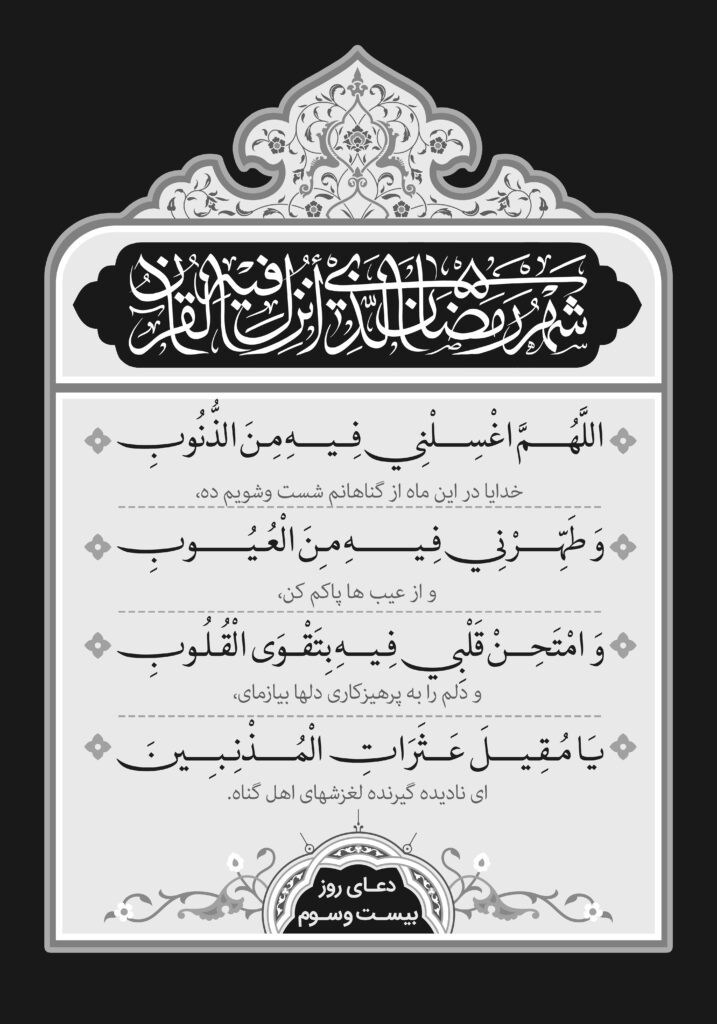 شَهْرُ رَمَضَانَ الَّذِي أُنْزِلَ فِيهِ الْقُرْآنُ
اللَّهُمَّ اغْسِلْنِي فِيهِ مِنَ الذُّنُوبِ
خدایا در این ماه از گناهانم شست وشویم ده،
وَ طَهِّرْنِي فِيهِ مِنَ الْعُيُوبِ
و از عیب ها پاکم کن،
وَ امْتَحِنْ قَلْبِي فِيهِ بِتَقْوَى الْقُلُوبِ
و دلم را به پرهیزکاری دلها بیازمای،
يَا مُقِيلَ عَثَرَاتِ الْمُذْنِبِينَ
ای نادیده گیرنده لغزشهای اهل گناه.
دعـای روز
بیسـت وسـوم